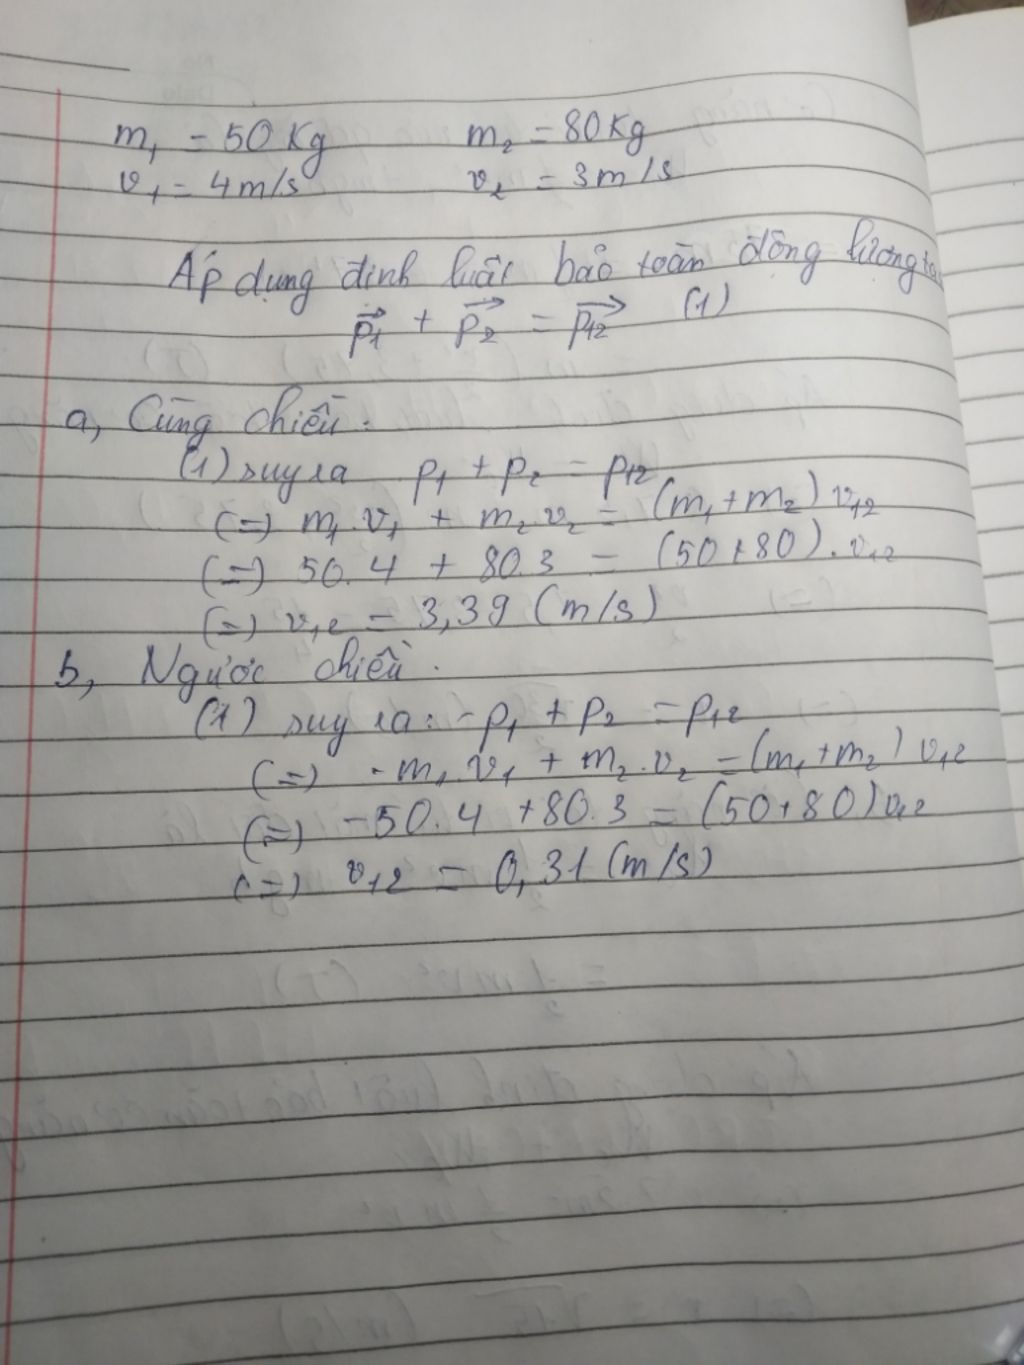 m₁ = 50 Kg m₂ = 80 Kg
v₁ = 4 m/s v₂ = 3 m/s
Áp dụng định luật bảo toàn động lượng ta
p₁⃗ + p₂⃗ = p₁₂⃗ (1)
a, Cùng chiều:
(1) suy ra p₁ + p₂ = p₁₂
(=) m₁.v₁ + m₂.v₂ = (m₁+m₂) v₁₂
(=) 50.4 + 80.3 = (50+80).v₁₂
(=) v₁₂ = 3,39 (m/s)
b, Ngược chiều.
(1) suy ra: -p₁ + p₂ = p₁₂
(=) -m₁.v₁ + m₂.v₂ = (m₁+m₂) v₁₂
(=) -50.4 +80.3 = (50+80) v₁₂
(=) v₁₂ = 0,31 (m/s)